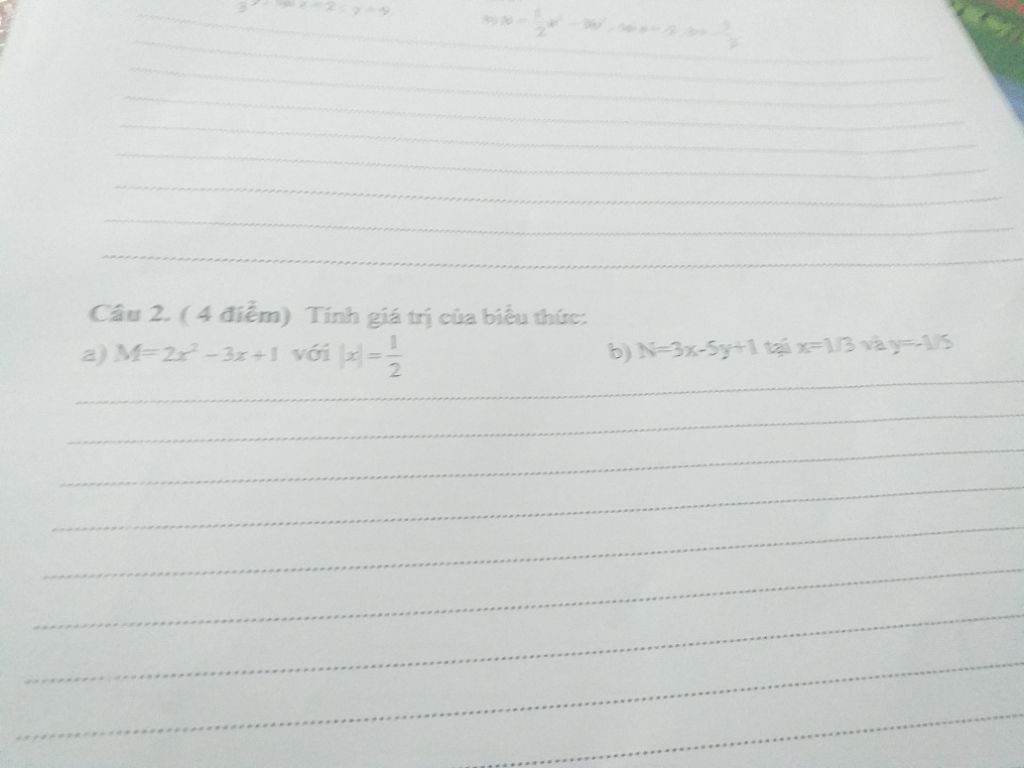 Câu 2. ( 4 điểm) Tính giá trị của biểu thức:
a) M= 2x² − 3x + 1 với |x| = 1/2 b) N=3x-5y+1 tại x=1/3 và y=-1/5